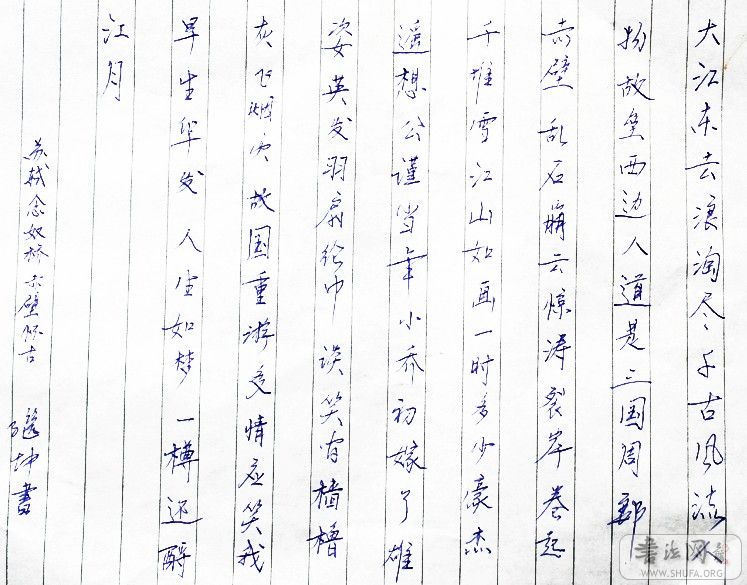 大江东去浪淘尽千古风流人
物故垒西边人道是三国周郎
赤壁乱石崩云惊涛裂岸卷起
千堆雪江山如画一时多少豪杰
遥想公谨当年小乔初嫁了雄
姿英发羽扇纶巾谈笑间樯橹
灰飞烟灭故国重游多情应笑我
早生华发人生如梦一樽还酹
江月
苏轼念奴桥赤壁怀古 坤书
书法网
WWW.SHUFA.ORG